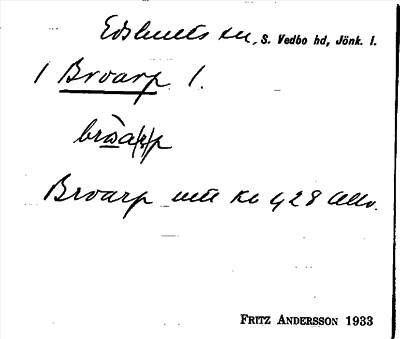 Edshults sn, S. Vedbo hd, Jönk. l.
1 Broarp 1.
brωa(r)p
Broarp utu Kr 4, 28 Allo.
FRITZ ANDERSSON 1933